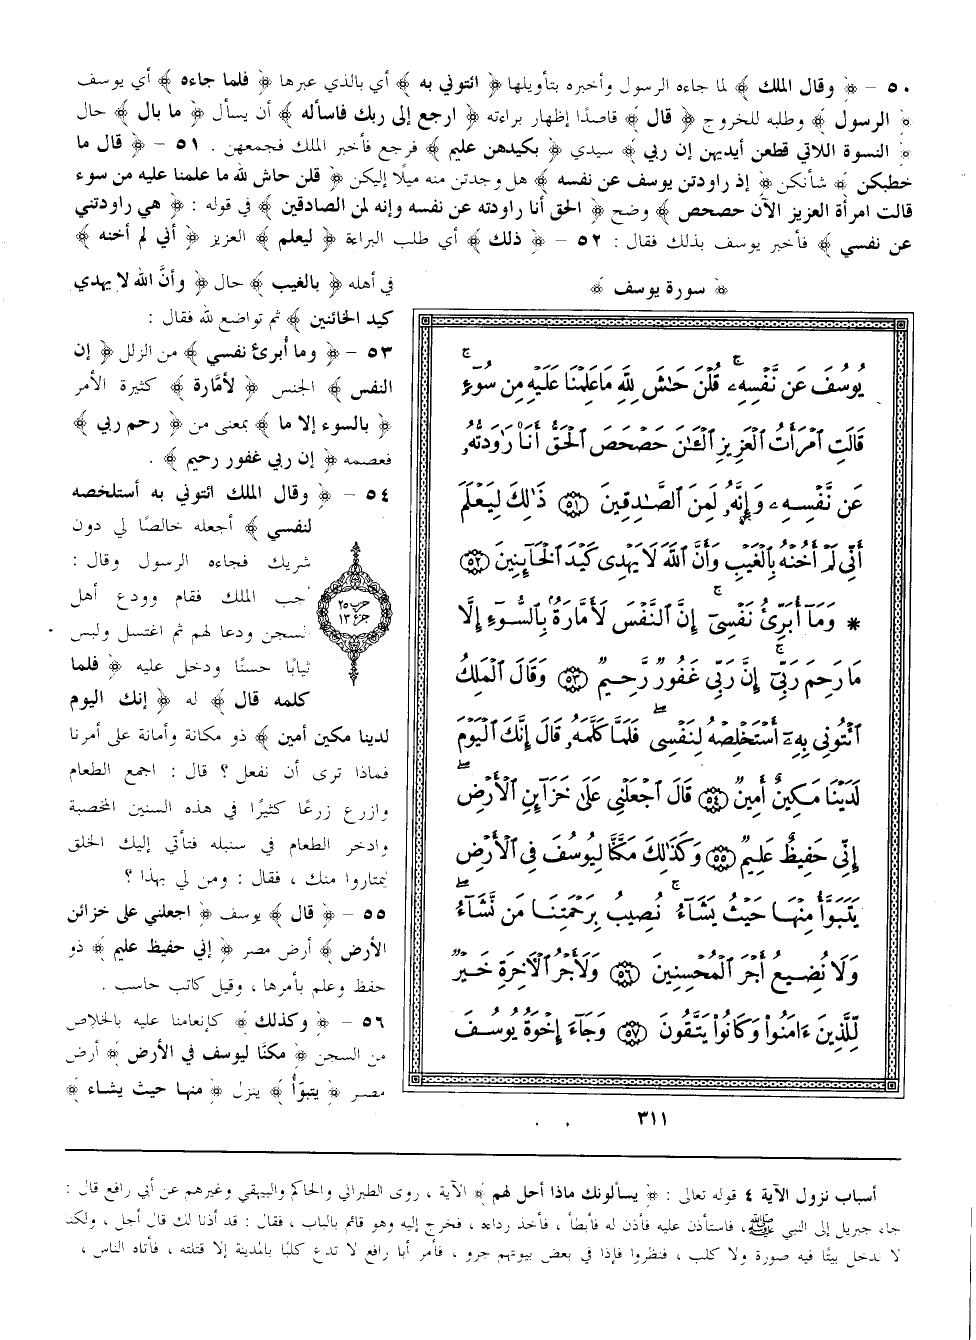 ٥٠ – ﴿ وقال الملك ﴾ لما جاءه الرسول وأخبره بتأويلها ﴿ ائتوني به ﴾ أي بالذي عبرها ﴿ فلما جاءه ﴾ أي يوسف
﴿ الرسول ﴾ وطلبه للخروج ﴿ قال ﴾ قاصدًا إظهار براءته ﴿ ارجع إلى ربك فاسأله ﴾ أن يسأل ﴿ ما بال ﴾ حال
﴿ النسوة اللاتي قطعن أيديهن إن ربي ﴾ سيدي ﴿ بكيدهن عليم ﴾ فرجع فأخبر الملك فجمعهن . ٥١ – ﴿ قال ما
خطبكن ﴾ شأنكن ﴿ إذ راودتن يوسف عن نفسه ﴾ هل وجدتن منه ميلًا إليكن ﴿ قلن حاش لله ما علمنا عليه من سوء
قالت امرأة العزيز الآن حصحص ﴾ وضح ﴿ الحق أنا راودته عن نفسه وإنه لمن الصادقين ﴾ في قوله : ﴿ هي راودتني
عن نفسي ﴾ فأخبر يوسف بذلك فقال : ٥٢ – ﴿ ذلك ﴾ أي طلب البراءة ﴿ ليعلم ﴾ العزيز ﴿ أني لم أخنه ﴾
﴿ سورة يوسف ﴾
يُوسُفَ عَن نَّفْسِهِۦۚ قُلْنَ حَٰشَ لِلَّهِ مَا عَلِمْنَا عَلَيْهِ مِن سُوٓءٍۚ
قَالَتِ ٱمْرَأَتُ ٱلْعَزِيزِ ٱلْـَٰٔنَ حَصْحَصَ ٱلْحَقُّ أَنَا۠ رَٰوَدتُّهُۥ
عَن نَّفْسِهِۦ وَإِنَّهُۥ لَمِنَ ٱلصَّٰدِقِينَ ٥١ ذَٰلِكَ لِيَعْلَمَ
أَنِّى لَمْ أَخُنْهُ بِٱلْغَيْبِ وَأَنَّ ٱللَّهَ لَا يَهْدِى كَيْدَ ٱلْخَآئِنِينَ ٥٢
* وَمَآ أُبَرِّئُ نَفْسِىٓۚ إِنَّ ٱلنَّفْسَ لَأَمَّارَةٌۢ بِٱلسُّوٓءِ إِلَّا
مَا رَحِمَ رَبِّىٓۚ إِنَّ رَبِّى غَفُورٌ رَّحِيمٌ ٥٣ وَقَالَ ٱلْمَلِكُ
ٱئْتُونِى بِهِۦٓ أَسْتَخْلِصْهُ لِنَفْسِىۖ فَلَمَّا كَلَّمَهُۥ قَالَ إِنَّكَ ٱلْيَوْمَ
لَدَيْنَا مَكِينٌ أَمِينٌ ٥٤ قَالَ ٱجْعَلْنِى عَلَىٰ خَزَآئِنِ ٱلْأَرْضِۖ
إِنِّى حَفِيظٌ عَلِيمٌ ٥٥ وَكَذَٰلِكَ مَكَّنَّا لِيُوسُفَ فِى ٱلْأَرْضِ
يَتَبَوَّأُ مِنْهَا حَيْثُ يَشَآءُۚ نُصِيبُ بِرَحْمَتِنَا مَن نَّشَآءُۖ
وَلَا نُضِيعُ أَجْرَ ٱلْمُحْسِنِينَ ٥٦ وَلَأَجْرُ ٱلْـَٔاخِرَةِ خَيْرٌ
لِّلَّذِينَ ءَامَنُوا۟ وَكَانُوا۟ يَتَّقُونَ ٥٧ وَجَآءَ إِخْوَةُ يُوسُفَ
٣١١
في أهله ﴿ بالغيب ﴾ حال ﴿ وأنَّ الله لا يهدي
كيد الخائنين ﴾ ثم تواضع لله فقال :
٥٣ – ﴿ وما أُبرئ نفسي ﴾ من الزلل ﴿ إن
النفس ﴾ الجنس ﴿ لأمَّارة ﴾ كثيرة الأمر
﴿ بالسوء إلا ما ﴾ بمعنى من ﴿ رحم ربي ﴾
فعصمه ﴿ إن ربي غفور رحيم ﴾ .
٥٤ – ﴿ وقال الملك ائتوني به أستلخصه
لنفسي ﴾ أجعله خالصًا لي دون
شريك فجاءه الرسول وقال :
أجب الملك فقام وودع أهل
السجن ودعا لهم ثم اغتسل ولبس
ثيابًا حسنًا ودخل عليه ﴿ فلما
كلمه قال ﴾ له ﴿ إنك اليوم
لدينا مكين أمين ﴾ ذو مكانة وأمانة على أمرنا
فماذا ترى أن نفعل ؟ قال : اجمع الطعام
وازرع زرعًا كثيرًا في هذه السنين المخصبة
وادخر الطعام في سنبله فتأتي إليك الخلق
ليمتاروا منك ، فقال : ومن لي بهذا ؟
٥٥ – ﴿ قال ﴾ يوسف ﴿ اجعلني على خزائن
الأرض ﴾ أرض مصر ﴿ إني حفيظ عليم ﴾ ذو
حفظ وعلم بأمرها ، وقيل كاتب حاسب .
٥٦ – ﴿ وكذلك ﴾ كإنعامنا عليه بالخلاص
من السجن ﴿ مكنَّا ليوسف في الأرض ﴾ أرض
مصر ﴿ يتبوّأُ ﴾ ينزل ﴿ منها حيث يشاء ﴾
حزب ٢٥
جزء ١٣
أسباب نزول الآية ٤ قوله تعالى : ﴿ يسألونك ماذا أحل لهم ﴾ الآية ، روى الطبراني والحاكم والبيهقي وغيرهم عن أبي رافع قال :
جاء جبريل إلى النبي ﷺ، فاستأذن عليه فأذن له فأبطأ ، فأخذ رداءه ، فخرج إليه وهو قائم بالباب ، فقال : قد أذنا لك قال أجل ، ولكنا
لا ندخل بيتًا فيه صورة ولا كلب ، فنظروا فإذا في بعض بيوتهم جرو ، فأمر أبا رافع لا تدع كلبًا بالمدينة إلا قتلته ، فأتاه الناس ،